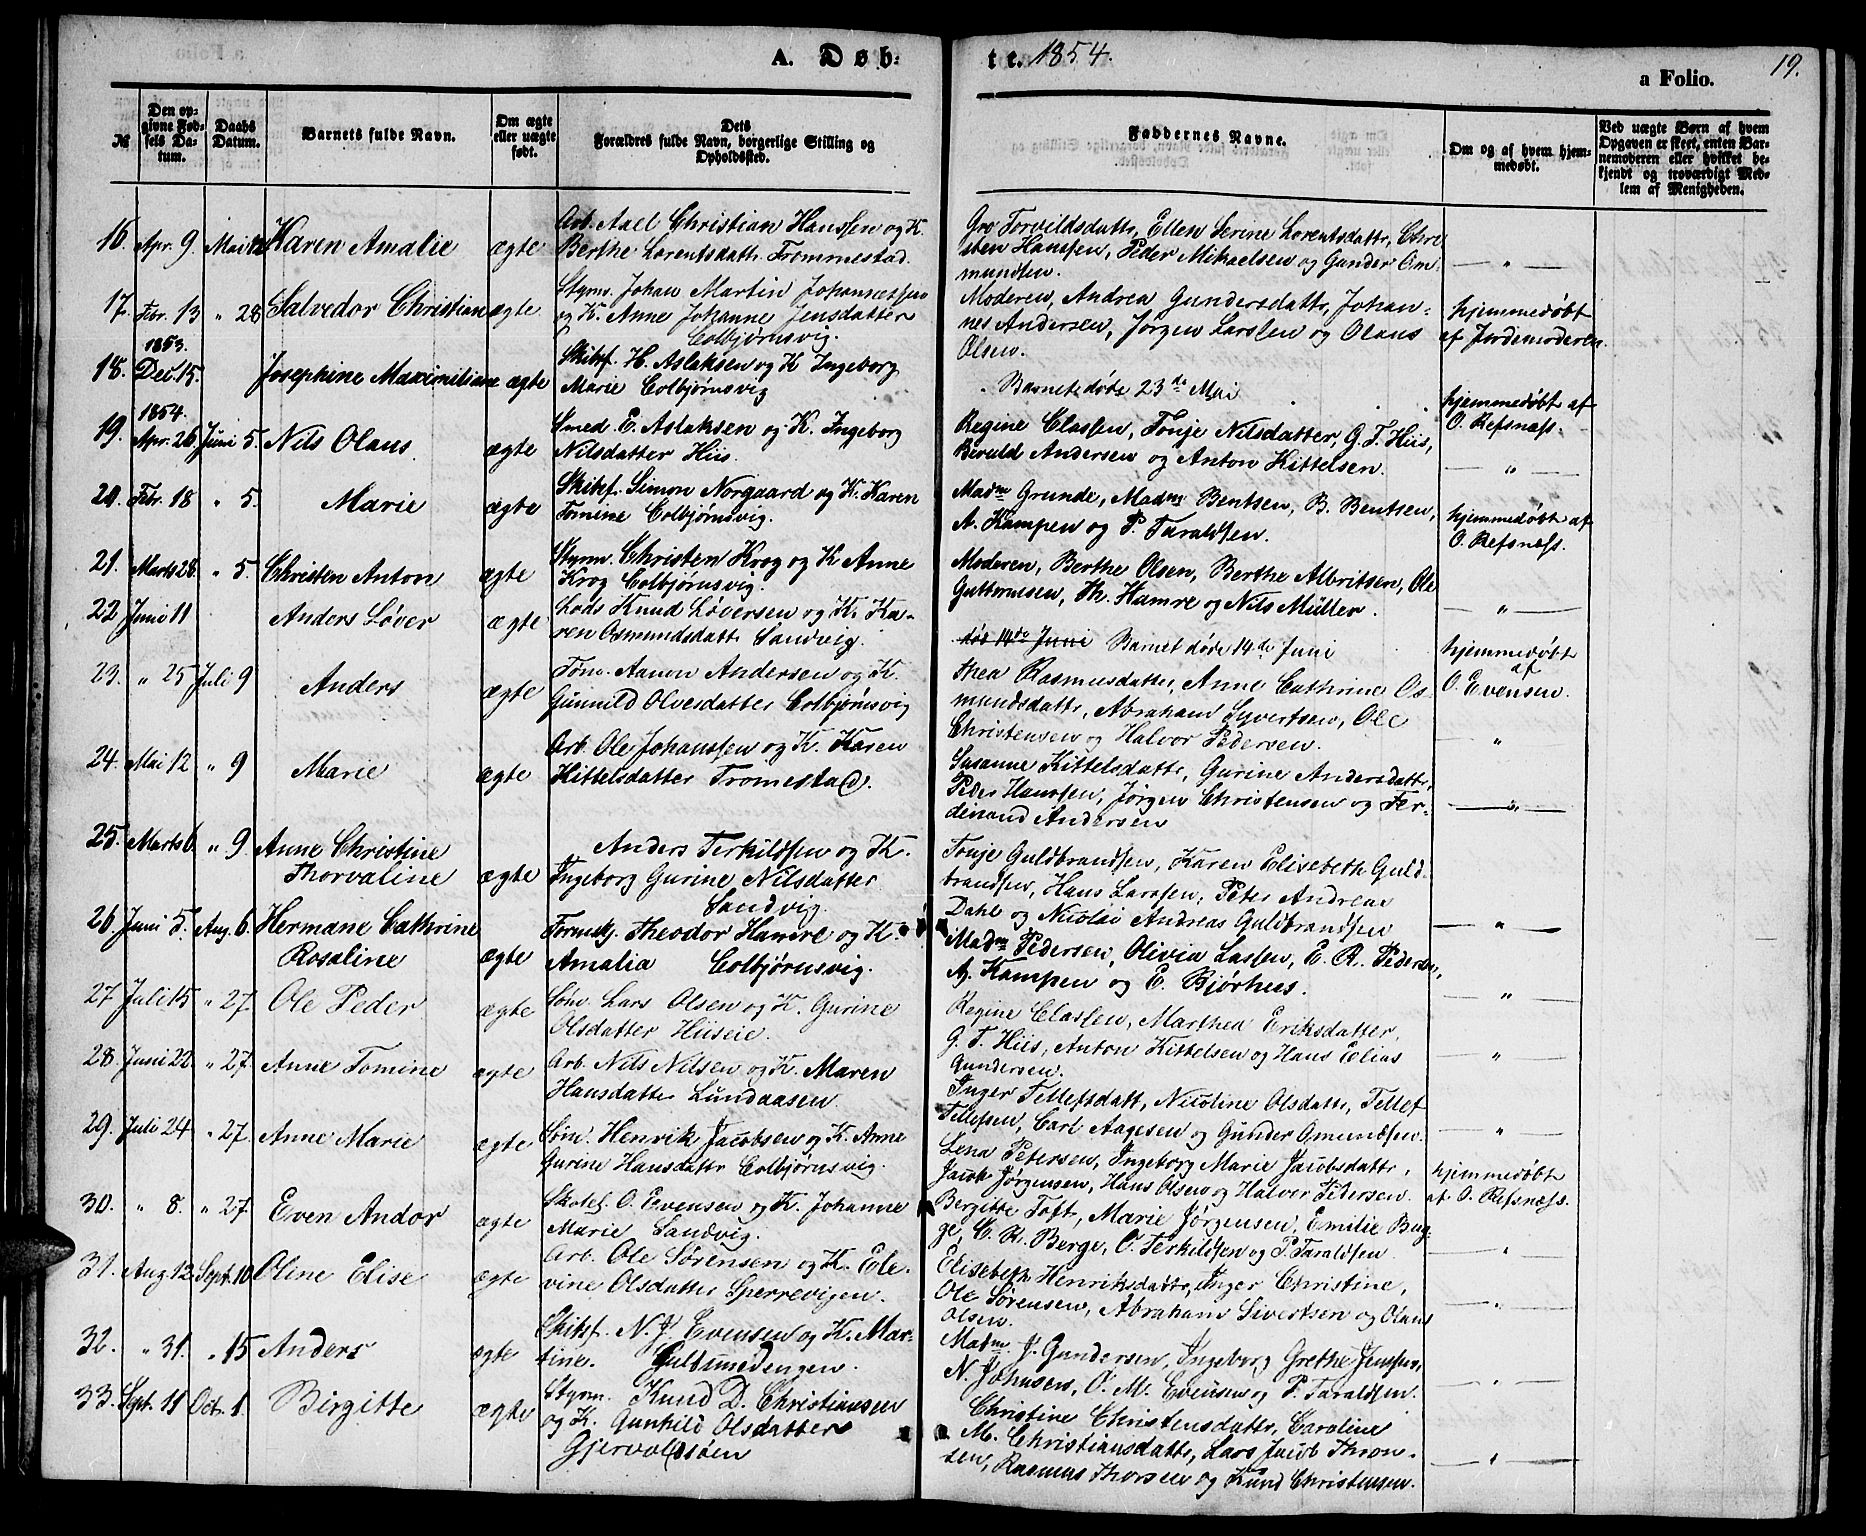 A. Døb-
te. 1854.
a Folio.
19.
№
Den op-
givne Fød-
sels Da-
tum.
Daabs
Datum.
Barnets fulde Navn.
Om ægte
eller uægte
født.
Dets
Forældres fulde Navn, borgerlige Stilling og
Opholdssted.
Faddernes Navne.
Om og af hvem hjem-
medøbt.
Ved uægte Børn af hvem
Opgaven er skeet, enten Bar-
nemoderen eller hvilket be-
kjendt og troværdigt Med-
lem af Menigheden.
16. Apr. 9. Mai Karen Amalie ægte
Arb. Axel Christian Hanssen og K.
Berthe Lorentsdattr. Trommestad.
Gro Torvildsdattr, Ellen Serine Lorentsdattr, Chri
sten Hanssen, Peder Mikaelsen og Gunder Om-
mundsen.
— " —
17. Febr. 13 " 28 Salvedor Christian ægte
Styrm. Johan Martin Johannessen
og K. Anne Johanne Jensdatter
Colbjørnsvig.
Moderen, Andrea Gundersdattr, Johan-
nes Andersen, Jørgen Larssen og Olaus
Olsen.
hjemmedøbt
af Jordemoderen.
18. 1853. Dec. 15. Josephine Maximiliane ægte
Skibsf. H. Aslaksen og K Ingeborg
Marie Colbjørnsvig
Barnet døde 23de Mai
hjemmedøbt af
O. Refsnæss.
19. 1854. Apr. 26 Juni 5. Nils Olaus. ægte
Smed E. Aslaksen og K. Ingeborg
Nilsdatter Hiis.
Regine Classen, Tonje Nilsdatter, G. T. Hiis,
Beruld Andersen og Anton Kittelsen.
— " —
20. Febr. 18 " 5. Marie ægte
Skibsf. Simon Norgaard og K. Karen
Tomine Colbjørnsvig.
Madm Grunde, Madm Bentsen, B. Bentsen,
A. Kampen og P. Taraldsen.
hjemmedøbt af
O. Refsnæss.
21. Marts 28. " 5. Christen Anton ægte
Styrm. Christen Krog og K Anne
Krog Colbjørnsvig.
Moderen, Berthe Olsen, Berthe Albritsen, Ole
Guttormsen, Th. Hamre og Nils Müller.
— " —
22 Juni 11 Anders Løver ægte
Lods Knud Løversen og K. Ka-
ren Osmundsdattr Sandvig.
død 14de Juni Barnet døde 14de Juni
hjemmedøbt
af
O. Evensen.
23. " 25 Juli 9 Anders ægte
Tøm. Aanon Andersen og K.
Gunnild Olvesdatter Colbjørnsvig
Thea Rasmusdatter, Anne Cathrine Os-
mundsdattr, Abraham Syvertsen, Ole
Christensen og Halvor Pedersen.
"
24. Mai 12 " 9 Marie ægte
Arb. Ole Johanssen og K. Karen
Kittelsdatter Tromestad.
Susanne Kittelsdattr, Gurine Andersdattr,
Peder Hanssen, Jørgen Christensen og Fer-
dinand Andersen
— " —
25. Marts 6. " 9 Anne Christine
Thorvaline ægte
Anders Terkildsen og K.
Ingeborg Gurine Nilsdatter
Sandvig.
Tonje Guldbrandsen, Karen Elisebeth Guld-
brandsen, Hans Larssen, Peter Andreas
Dahl og Nicolai Andreas Guldbrandsen
— " —
26 Juni 5. Aug. 6. Hermane Cathrine
Rosaline ægte
Theodor Hamre og K.
Amalia Colbjørnsvig.
Madm Pedersen, Olivia Lassen, E. R. Pedersen,
A. Kampen og E. Bjørhus.
— " —
27 Juli 15 " 27. Ole Peder ægte
Søm. Lars Olsen og K. Gurine
Olsdatter Hiiseie.
Regine Classen, Marthea Eriksdatter,
G. T. Hiis, Anton Kittelsen og Hans Elias
Gundersen.
— " —
28. Juni 22 " 27. Anne Tomine ægte
Arb. Nils Nilsen og K. Maren
Hansdatter Lundaasen
Inger Tellefsdatt, Nicoline Olsdattr, Tellef
Tellefsen, Carl Aagesen og Gunder Omundsen.
— " —
29. Juli 24 " 27. Anne Marie ægte
Søm. Henrik Jacobsen og K. Anne
Gurine Hansdattr Colbjørnsvig.
Lena Petersen, Ingeborg Marie Jacobsdattr,
Jacob Jørgensen, Hans Olsen og Halvor Petersen.
hjemmedøbt
af O. Refsnæss.
30. " 8. " 27. Even Andor ægte
O. Evensen og K. Johanne
Marie Sandvig.
Bergitte Toft, Marie Jørgensen, Emilie Bug-
ge, C. R. Berge, O. Terkildsen og P. Taraldsen.
— " —
31. Aug 12 Sept. 10 Oline Elise ægte
Arb. Ole Sørensen og K. Ele-
vine Olsdatter Sperrevigen.
Elisebeth Henriksdattr, Inger Christine,
Ole Sørensen, Abraham Sivertsen og Olaus
Olsen.
— " —
32. " 31. " 15 Anders ægte
Skibsf. N. J. Evensen og K. Mar-
tine. Guldsmedengen.
Madm. J. Gundersen, Ingeborg Grethe Jenssen,
N. Johnsen, O. M. Evensen og P. Taraldsen.
— " —
33. Sept. 11 Oct. 1. Birgitte ægte
Styrm. Knud D. Christiansen
og K. Gunhild Olsdatter
Gjervoldsøen
Christine Christensdattr, Caroline
M. Christiansdattr, Lars Jacob Thron-
sen, Rasmus Thorsen og Knud Christensen.
— " —